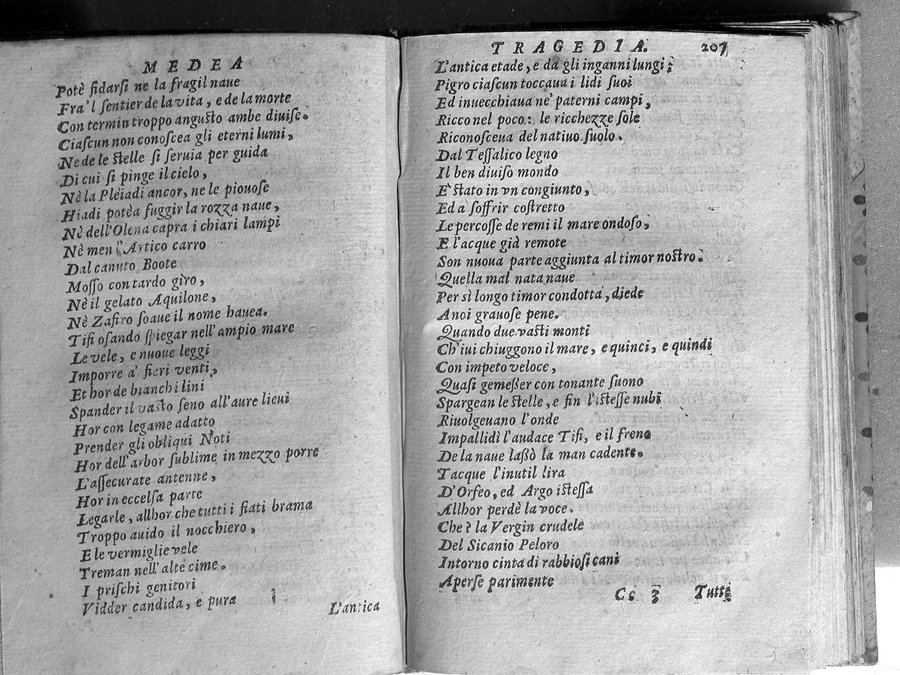 MEDEA
Potè fidarsi ne la fragil naue
Fra'l sentier de la vita, e de la morte
Con termin troppo angusto ambe diuise.
Ciascun non conoscea gli eterni lumi,
Ne de le stelle si seruia per guida
Di cui si pinge il cielo,
Nè la Pleiadi ancor, ne le piouose
Hiadi potèa fuggir la rozza naue,
Nè dell'Olena capra i chiari lampi
Nè men l'Artico carro
Dal canuto Boote
Mosso con tardo giro,
Nè il gelato Aquilone,
Nè Zafiro soaue il nome hauea.
Tifi osando spiegar nell'ampio mare
Le vele, e nuoue leggi
Imporre a' fieri venti,
Et hor de bianchi lini
Spander il vasto seno all'aure lieui
Hor con legame adatto
Prender gli obliqui Noti
Hor dell'arbor sublime in mezzo porre
L'assecurate antenne,
Hor in eccelsa parte
Legarle, allhor che tutti i fiati brama
Troppo auido il nocchiero,
E le vermiglie vele
Treman nell'alte cime.
I prischi genitori
Vidder candida, e pura
L'antica
TRAGEDIA. 207
L'antica etade, e da gli inganni lungi;
Pigro ciascun toccaua i lidi suoi
Ed inuecchiaua ne' paterni campi,
Ricco nel poco: le ricchezze sole
Riconosceua del natiuo suolo.
Dal Tessalico legno
Il ben diuiso mondo
E' stato in vn congiunto,
Ed a soffrir costretto
Le percosse de remi il mare ondoso,
E l'acque già remote
Son nuoua parte aggiunta al timor nostro.
Quella mal nata naue
Per sì longo timor condotta, diede
A noi grauose pene.
Quando due vasti monti
Ch'iui chiuggono il mare, e quinci, e quindi
Con impeto veloce,
Quasi gemesser con tonante suono
Spargean le stelle, e fin l'istesse nubi
Riuolgeuano l'onde
Impallidì l'audace Tifi, e il freno
De la naue lassò la man cadente.
Tacque l'inutil lira
D'Orfeo, ed Argo istessa
Allhor perdè la voce.
Che è la Vergin crudele
Del Sicanio Peloro
Intorno cinta di rabbiosi cani
Aperse parimente
Cc 3 Tutte